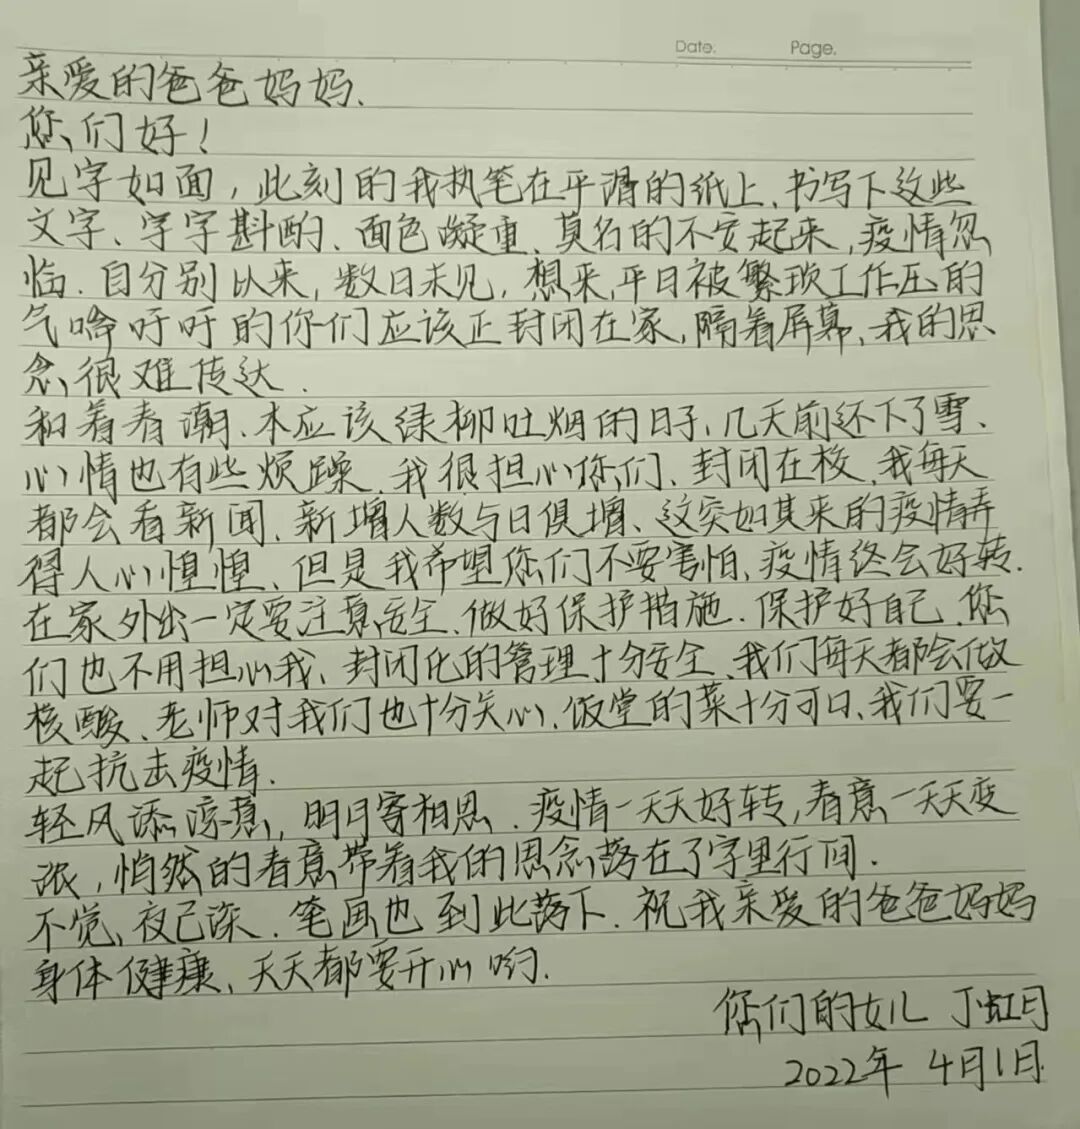 Date. Page.
亲爱的爸爸妈妈.
您们好！
见字如面，此刻的我执笔在平滑的纸上、书写下这些
文字、字字斟酌、面色凝重、莫名的不安起来，疫情忽
临. 自分别以来，数日未见，想来，平日被繁琐工作压的
气喘吁吁的你们应该正封闭在家，隔着屏幕、我的思
念很难传达.
和着春潮、本应该绿柳吐烟的日子、几天前还下了雪、
心情也有些烦躁、我很担心你们、封闭在校、我每天
都会看新闻、新增人数与日俱增、这突如其来的疫情弄
得人心惶惶、但是我希望您们不要害怕、疫情终会好转.
在家外出一定要注意安全、做好保护措施. 保护好自己、您
们也不用担心我、封闭化的管理十分安全、我们每天都会做
核酸、老师对我们也十分关心、饭堂的菜十分可口、我们要一
起抗击疫情.
轻风添凉意，明月寄相思. 疫情一天天好转，春意一天天变
浓，悄然的春意带着我的思念落在了字里行间.
不觉、夜已深. 笔画也到此落下. 祝我亲爱的爸爸妈妈
身体健康、天天都要开心哟.
您们的女儿 丁虹月
2022年 4月1日